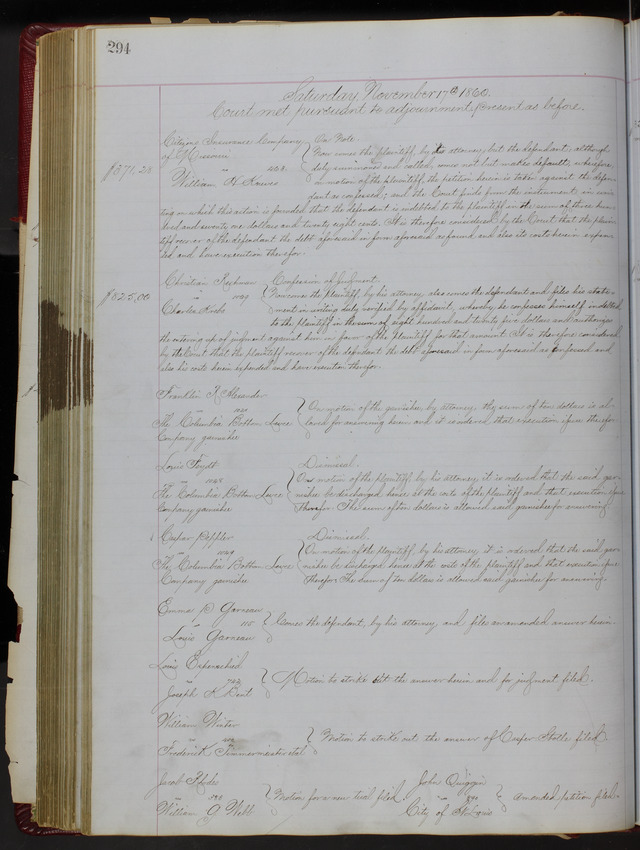 294
Saturday, November 17th 1860.
Court met pursuant to adjournment. Present as before.
Citizens Insurance Company } On Note.
of Missouri } Now comes the plaintiff, by its attorney but the defendant, although
$371,28 duly summoned and called, comes not but makes default; wherefore
William H. in motion of the plaintiff, the petition herein is taken against the defen-
dant as confessed; and the Court finds from the instrument in wri-
ting on which this action is founded that the defendant is indebted to the plaintiff in the sum of three hun-
dred and seventy one dollars and twenty eight cents. It is therefore considered by the Court that the plain-
tiff recover of the defendant the debt aforesaid in form aforesaid so found and also its costs herein expen-
ded and have execution therefor.
Christian } Confession of Judgment.
$825,00 Now comes the plaintiff, by his attorney also comes the defendant and files his state-
Charles Krebs ment in writing duly verified by affidavit, whereby he confesses himself indebted
to the plaintiff in the sum of eight hundred and twenty five dollars and authorizes
the entering up of judgment against him in favor of the plaintiff for that amount. It is therefore considered
by the Court that the plaintiff recover of the defendant the debt aforesaid in form aforesaid so confessed and
also his costs herein expended and have execution therefor.
Franklin R. Alexander
The Columbia Bottom Levee } On motion of the garnishee, by attorney, the sum of ten dollars is al-
Company garnishee lowed for answering herein and it is ordered that execution issue therefor.
Louis } Dismissal.
On motion of the plaintiff, by his attorney, it is ordered that the said gar-
The Columbia Bottom Levee nishee be discharged hence at the costs of the plaintiff and that execution issue
Company garnishee therefor. The sum of ten dollars is allowed said garnishee for answering.
Caspar Poppler } Dismissal.
On motion of the plaintiff, by his attorney, it is ordered that the said gar-
The Columbia Bottom Levee nishee be discharged hence at the costs of the plaintiff and that execution issue
Company garnishee therefor. The sum of ten dollars is allowed said garnishee for answering.
Emma P. Garneau
} Comes the defendant, by his attorney, and files an amended answer herein.
Louis Garneau
Louis Espenschied
} Motion to strike out the answer herein and for judgment filed.
Joseph K. Bent
William Winter
} Motion to strike out the answer of Casper Stolle filed.
Frederick et al
Jacob } Motion for a new trial filed.
William G. Webb
John Quiggin
} Amended petition filed.
City of St. Louis